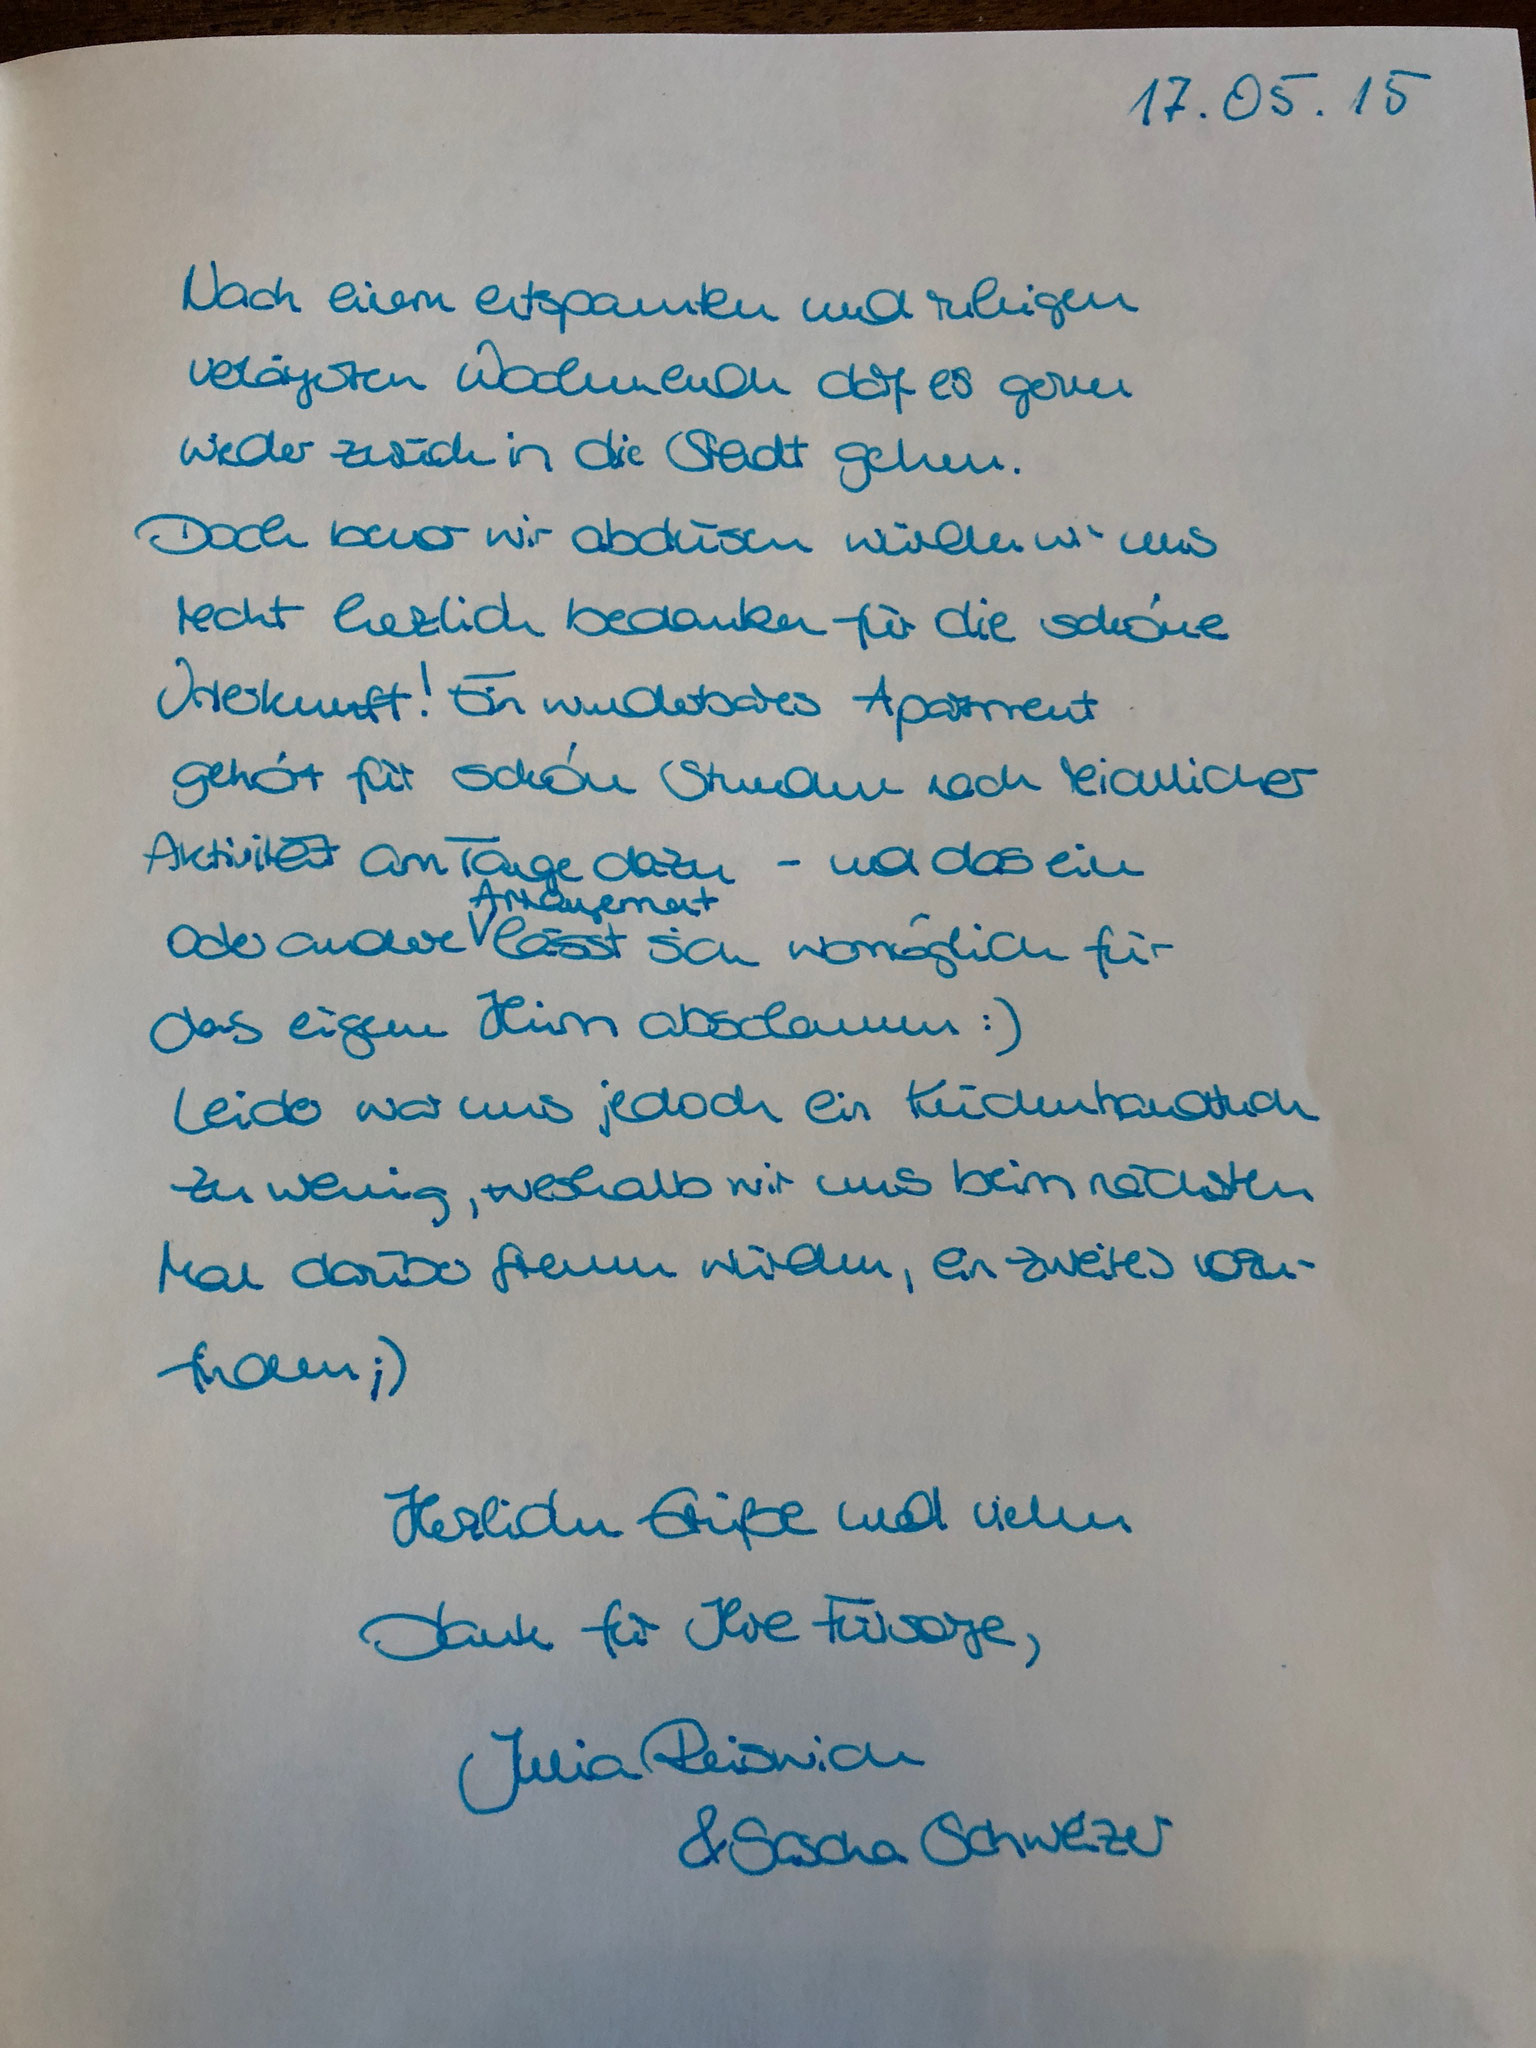 17.05.15
Nach einem entspannten und ruhigen
verlängerten Wochenende darf es gerne
wieder zurück in die Stadt gehen.
Doch bevor wir abdüsen würden wir uns
recht herzlich bedanken für die schöne
Unterkunft! Ein wunderbares Apartment
gehört für schöne Stunden nach reichlicher
Aktivität am Tage dazu - und das ein
oder andere Arrangement lässt sich womöglich für
das eigene Heim abschauen :)
Leider war uns jedoch ein Küchenhandtuch
zu wenig, weshalb wir uns beim nächsten
Mal darüber freuen würden, ein zweites vorzu-
finden ;)
Herzliche Grüße und vielen
Dank für Ihre Fürsorge,
Julia
& Sascha Schweizer